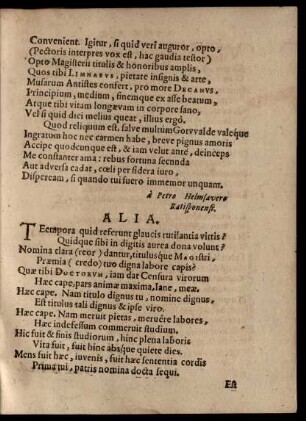 Convenient. Igitur, si quid verî auguror, opto,
(Pectoris interpres vox est, hac gaudia testor)
Opto Magisterii titulis & honoribus amplis,
Quos tibi LIMNAEUS, pietate insignis & arte,
Musarum Antistes confert, pro more DECANUS,
Principium, medium, finemque ex asse beatum,
Atque tibi vitam longævam in corpore sano,
Vel si quid dici melius queat, illius ergò.
Quod reliquum est, salve multùm Gotvvalde valeque
Ingratum hoc nec carmen habe, breve pignus amoris
Accipe quodcunque est, & iam velut antè, deinceps
Me constanter ama: rebus fortuna secunda
Aut adversa cadat, cœli per sidera iuro,
Dispeream, si quando tui fuero immemor unquam.
à Petro Heimsavero
Ratisponensi.
ALIA.
TEctapora quid referunt glaucis rutilantia vittis?
Quidque sibi in digitis aurea dona volunt?
Nomina clara (reor) dantur, titulusque MAGIstri,
Præmia (credo) tuo digna labore capis?
Quæ tibi DOCTORUM, iam dat Censura virorum
Hæc cape, pars animæ maxima, Iane, meæ.
Hæc cape. Nam titulo dignus tu, nomine dignus,
Est titulus tali dignus & ipse viro.
Hæc cape. Nam meruit pietas, meruêre labores,
Hæc indefessum commeruit studium.
Hic fuit & finis studiorum, hinc plena laboris
Vita fuit, fuit hinc absque quiete dies.
Mens fuit hæc, iuvenis, fuit hæc sententia cordis
Prima tui, patris nomina docta sequi.
Est